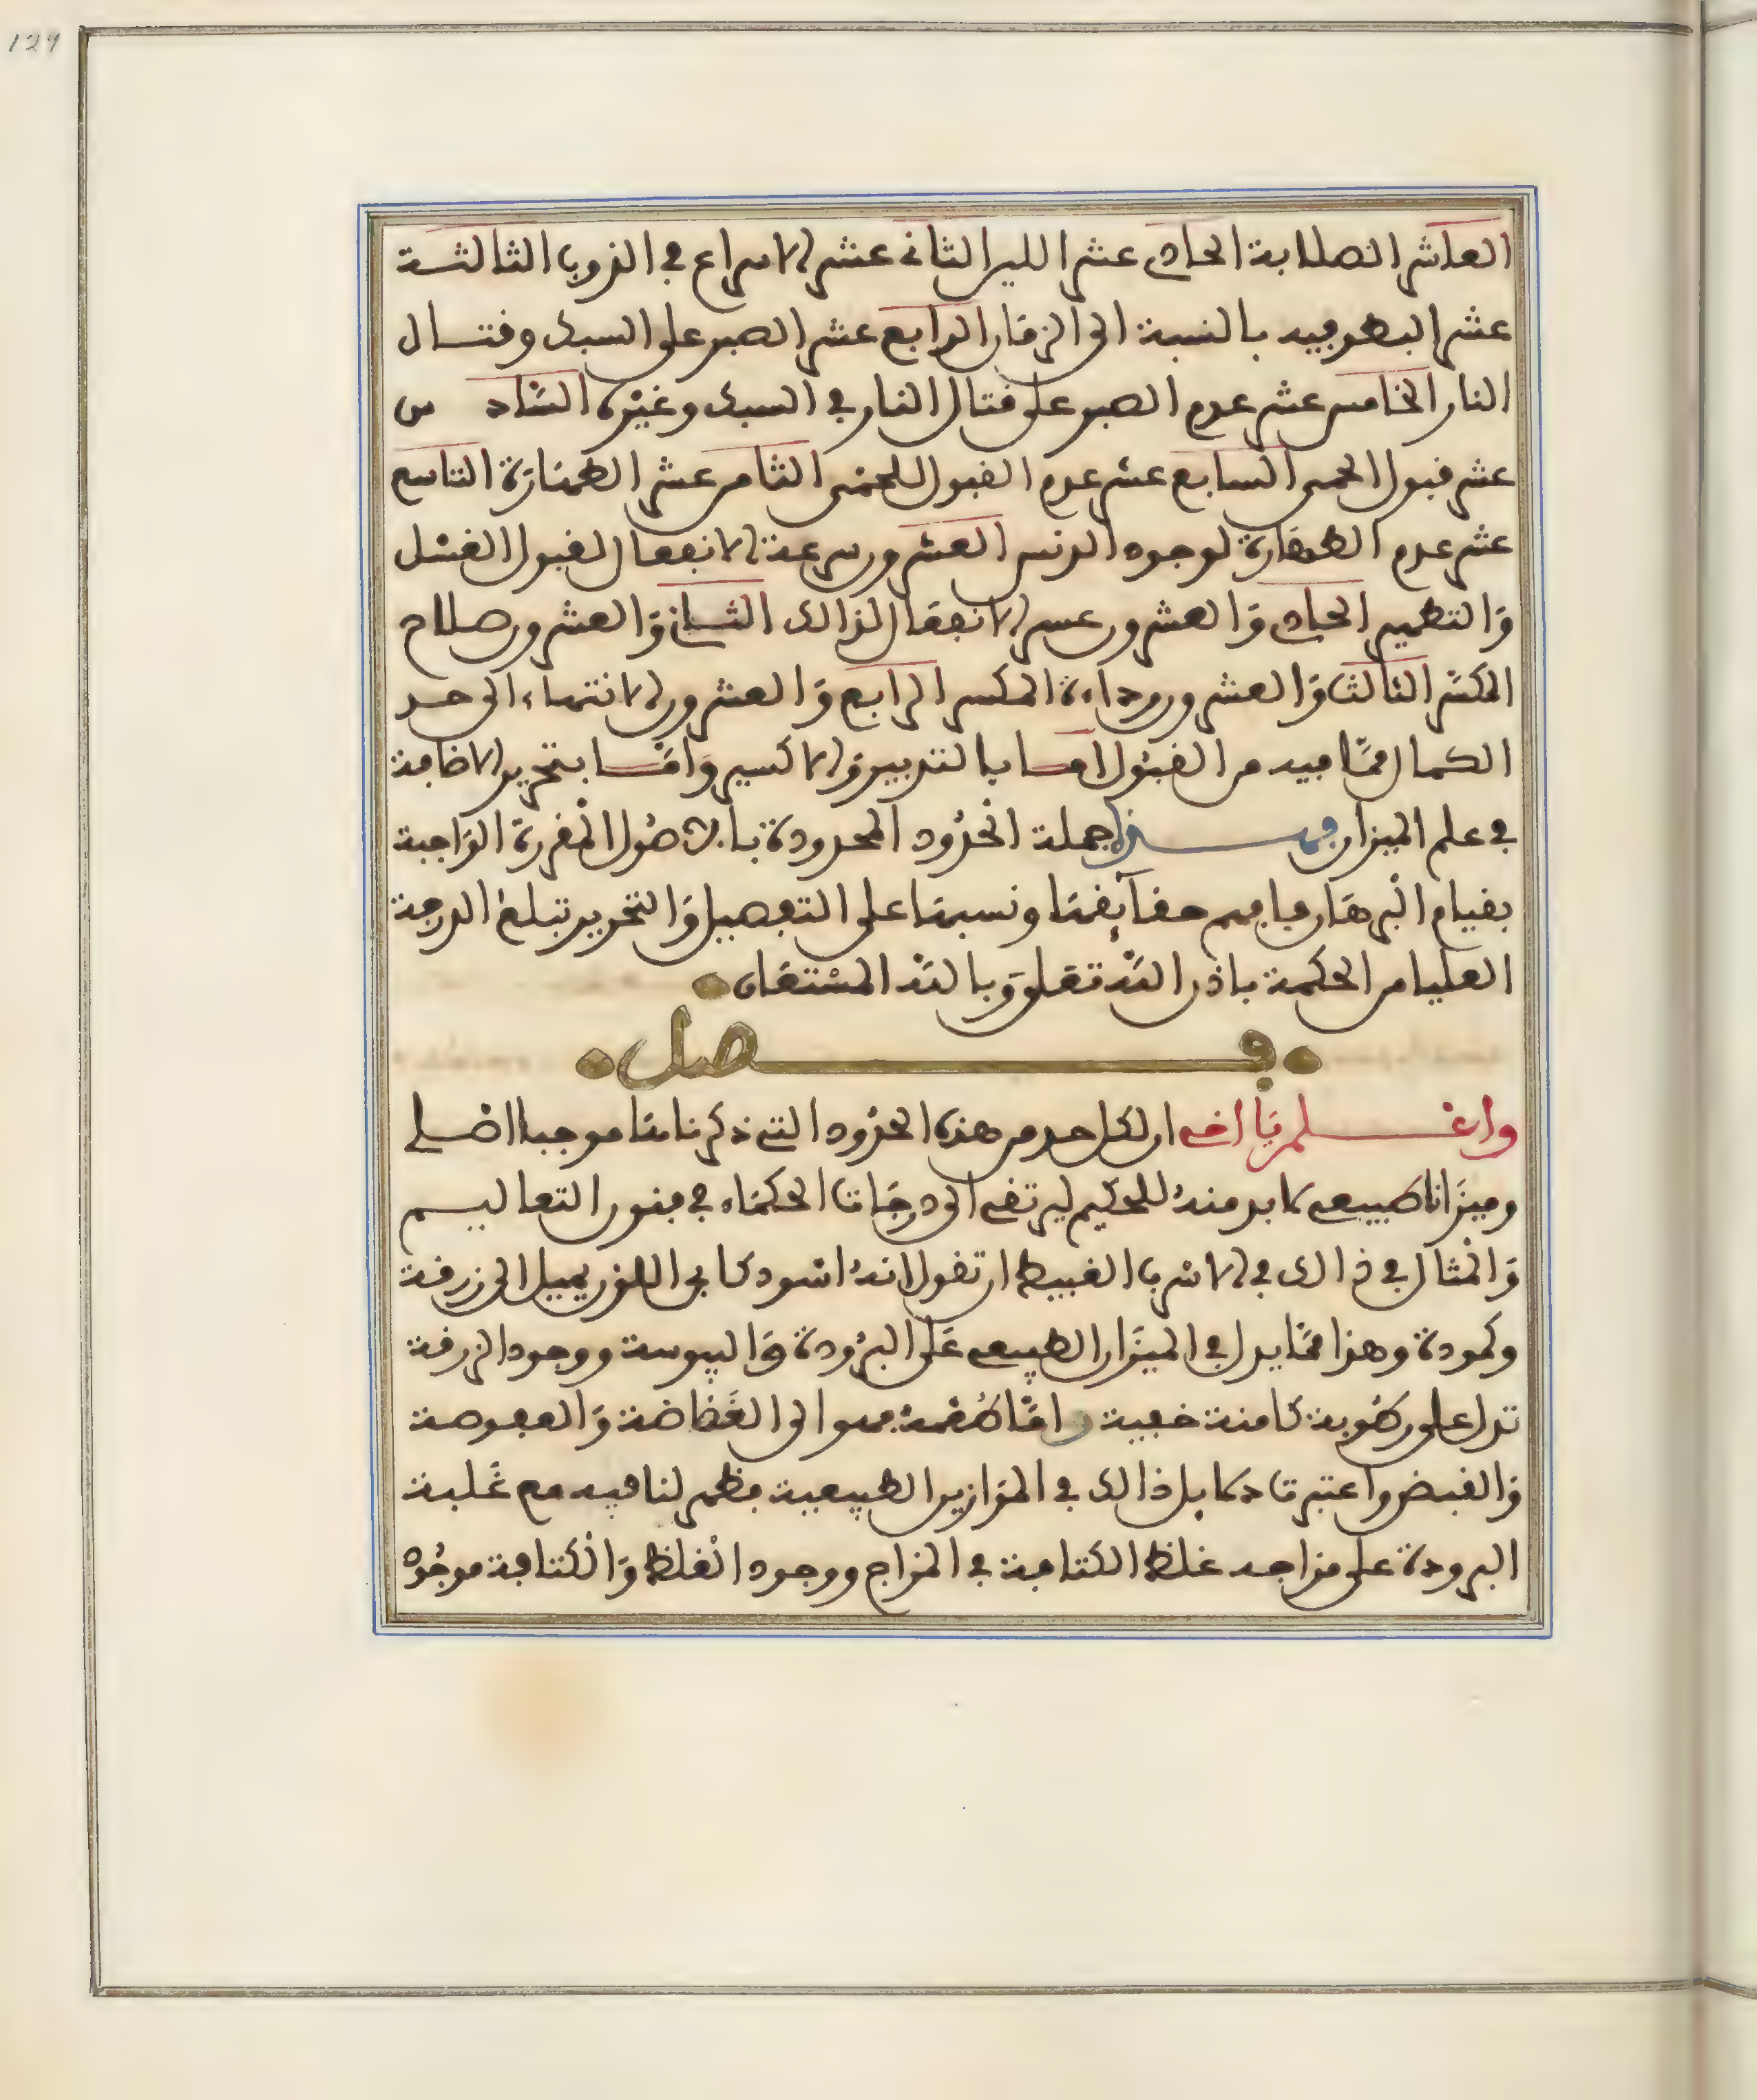 129
العاشر الصلابة الحادي عشر اللين الثاني عشر الاسراع في الذوب الثالثة
عشر البطو فيه بالنسبة الى الزمان الرابع عشر الصبر على السبك وقتال
النار الخامس عشر عدم الصبر على قتال النار في السبك وغيره السادس
عشر قبول الحمى السابع عشر عدم القبول للحمى الثامن عشر الطهارة التاسع
عشر عدم الطهارة لوجود الدنس العشرون سرعة الانفعال لقبول الغسل
والتطهير الحادي والعشرون عسر الانفعال لذالك الثاني والعشرون صلاح
المكسر الثالث والعشرون رداءة المكسر الرابع والعشرون الانتهاء الى حد
الكمال مما فيه من القبول اما بالتدبير والاكسير واما بتحرير الاضافة
في علم الميزان فهذا جملة الحدود المحدودة بالاصول المقررة الواجبة
بقيام البرهان فافهم حقايقها ونسبها على التفصيل والتحرير تبلغ الدرجة
العليا من الحكمة باذن الله تعلى وبالله المستعان
فصل
واعلم يا اخي ان لكل حد من هذه الحدود التي ذكرناها موجبا اصلي
وميزانا طبيعي لابد منه للحكيم ليرتقي الى درجات الحكماء في فنون التعاليم
والمثال في ذالك في الاسرب الغبيط ان تقول انه اسود كابي اللون يميل الى زرقة
وكمودة وهذا مما يدل في الميزان الطبيعي على البرودة واليبوسة ووجود الزرقة
تدل على رطوبة كامنة خفية واما طعمه فهو الى الغضاضة والعفوصة
والقبض واعتبرنا دلايل ذالك في الموازين الطبيعية فظهر لنا فيه مع غلبة
البرودة على مزاجه غلظ الكثافة في المزاج ووجود الغلظ والكثافة موجود